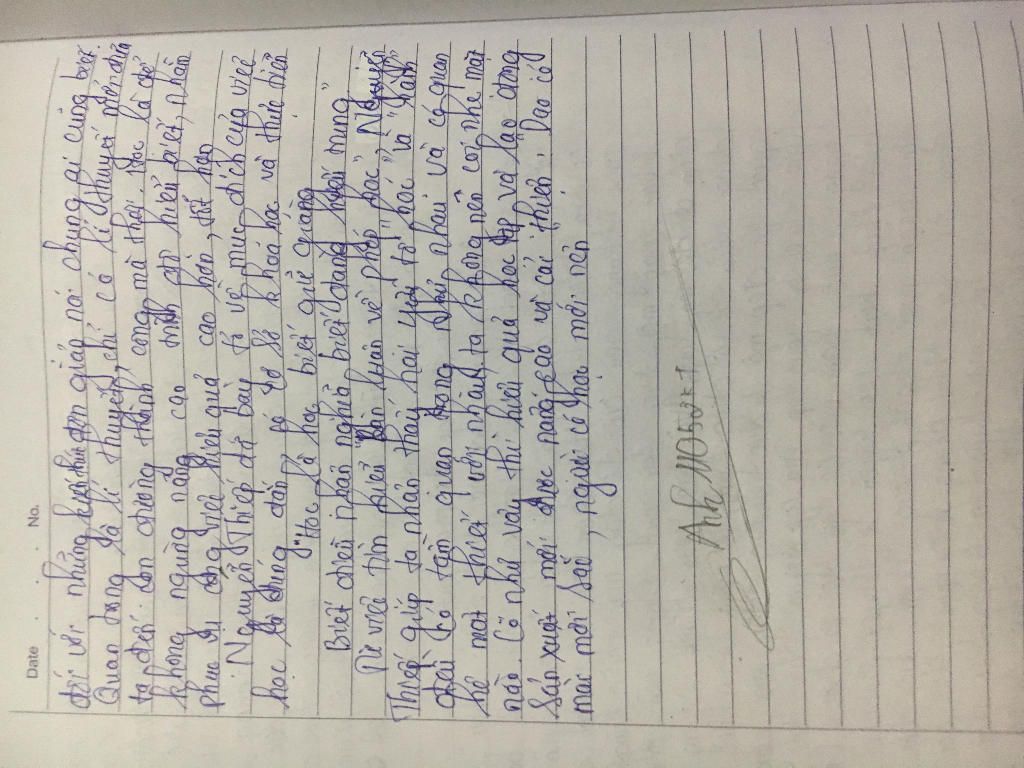 Date No.
đối với những đơn giản nói chung ai cũng biết
Quan trọng là lí thuyết, chỉ có lí thuyết mới đưa
ta đến con đường thành công mà thôi. Học là để
không ngừng nâng cao trình độ hiểu biết, nhằm
phục vụ công việc hiệu quả cao hơn, tốt hơn
Nguyễn Thiếp đã bày tỏ về mục đích của việc
học là đúng đắn có cơ sở khoa học và thực tiễn
"Học là học biết giữ giàng
Biết điều nhân nghĩa biết đàng hỏi mung"
Từ việc tìm hiểu "Bàn luận về phép học" Nguyễn
Thiếp giúp ta nhận thấy hai yếu tố "học" và "hành"
đều có tầm quan trọng như nhau và có quan
hệ mật thiết với nhau, ta không nên coi nhẹ mặt
nào. Có như vậy thì hiệu quả học tập và lao động
sản xuất mới được nâng cao và cải thiện, "Dao có
mài mới sắc, người có học mới nên